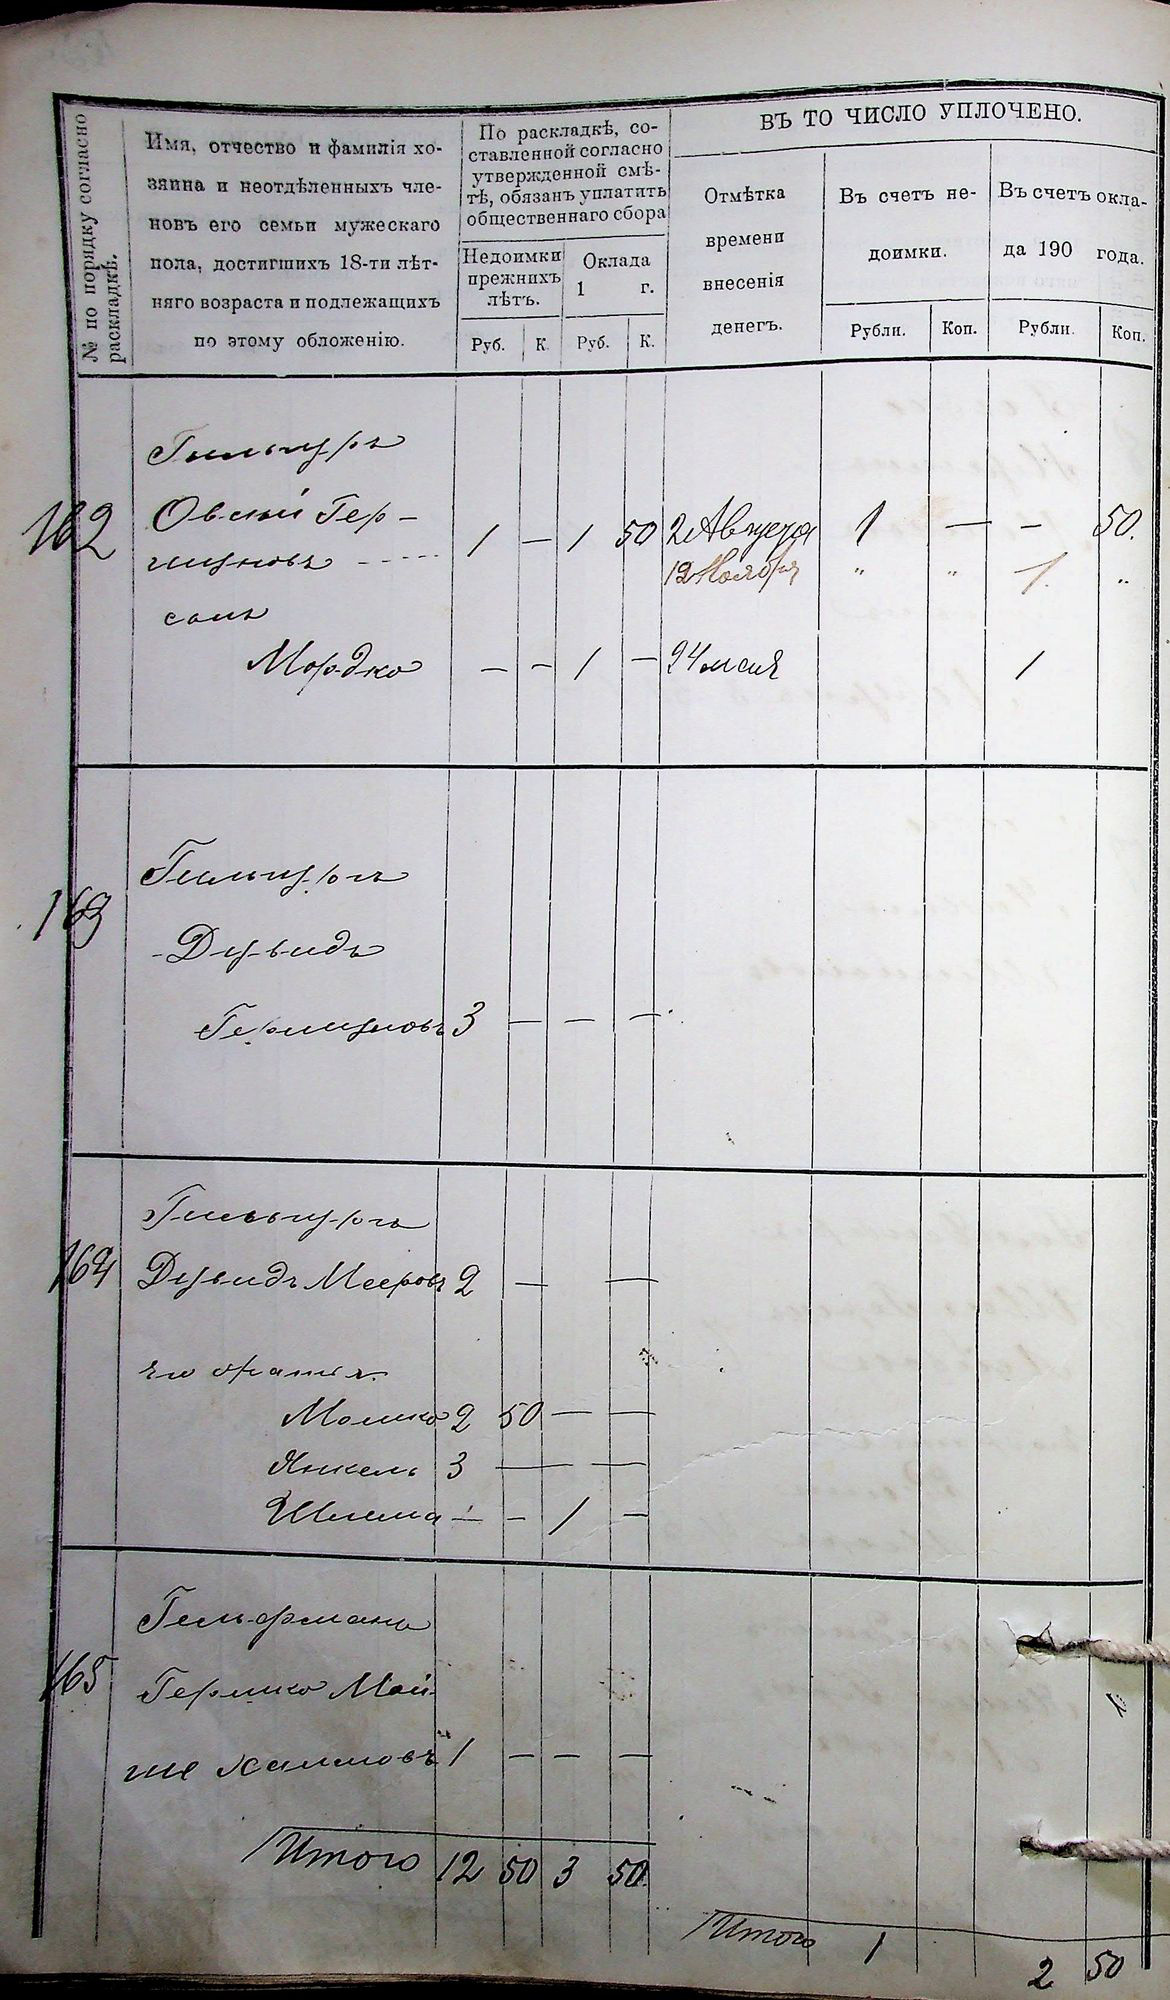 № по порядку согласно
раскладкѣ.
Имя, отчество и фамилія хо-
зяина и неотдѣленныхъ чле-
новъ его семьи мужескаго
пола, достигшихъ 18-ти лѣт-
няго возраста и подлежащихъ
по этому обложенію.
По раскладкѣ, со-
ставленной согласно
утвержденной смѣ-
тѣ, обязанъ уплатить
общественнаго сбора
Недоимки
прежнихъ
лѣтъ.
Оклада
1 г.
Руб. К. Руб. К.
ВЪ ТО ЧИСЛО УПЛОЧЕНО.
Отмѣтка
времени
внесенія
денегъ.
Въ счетъ не-
доимки.
Въ счетъ окла-
да 190 года.
Рубли. Коп. Рубли. Коп.
162
Гильчукъ
Овсей Гер-
шуновъ 1 — 1 50 2 Августа 1 — — 50.
12 Ноября " " 1. "
сынъ
Мордко — — 1 — 24 мая 1
163
Гильчукъ
Дувидъ
Гершуновъ 3 — — —
164
Гильчукъ
Дувидъ Мееровъ 2 — —
его братья
Мошко 2 50 — —
Янкель 3 — —
Шлема — — 1 —
165
Гельфманъ
Гершко Мой-
ше Хаимовъ 1 — — —
Итого 12 50 3 50
Итого 1 2 50